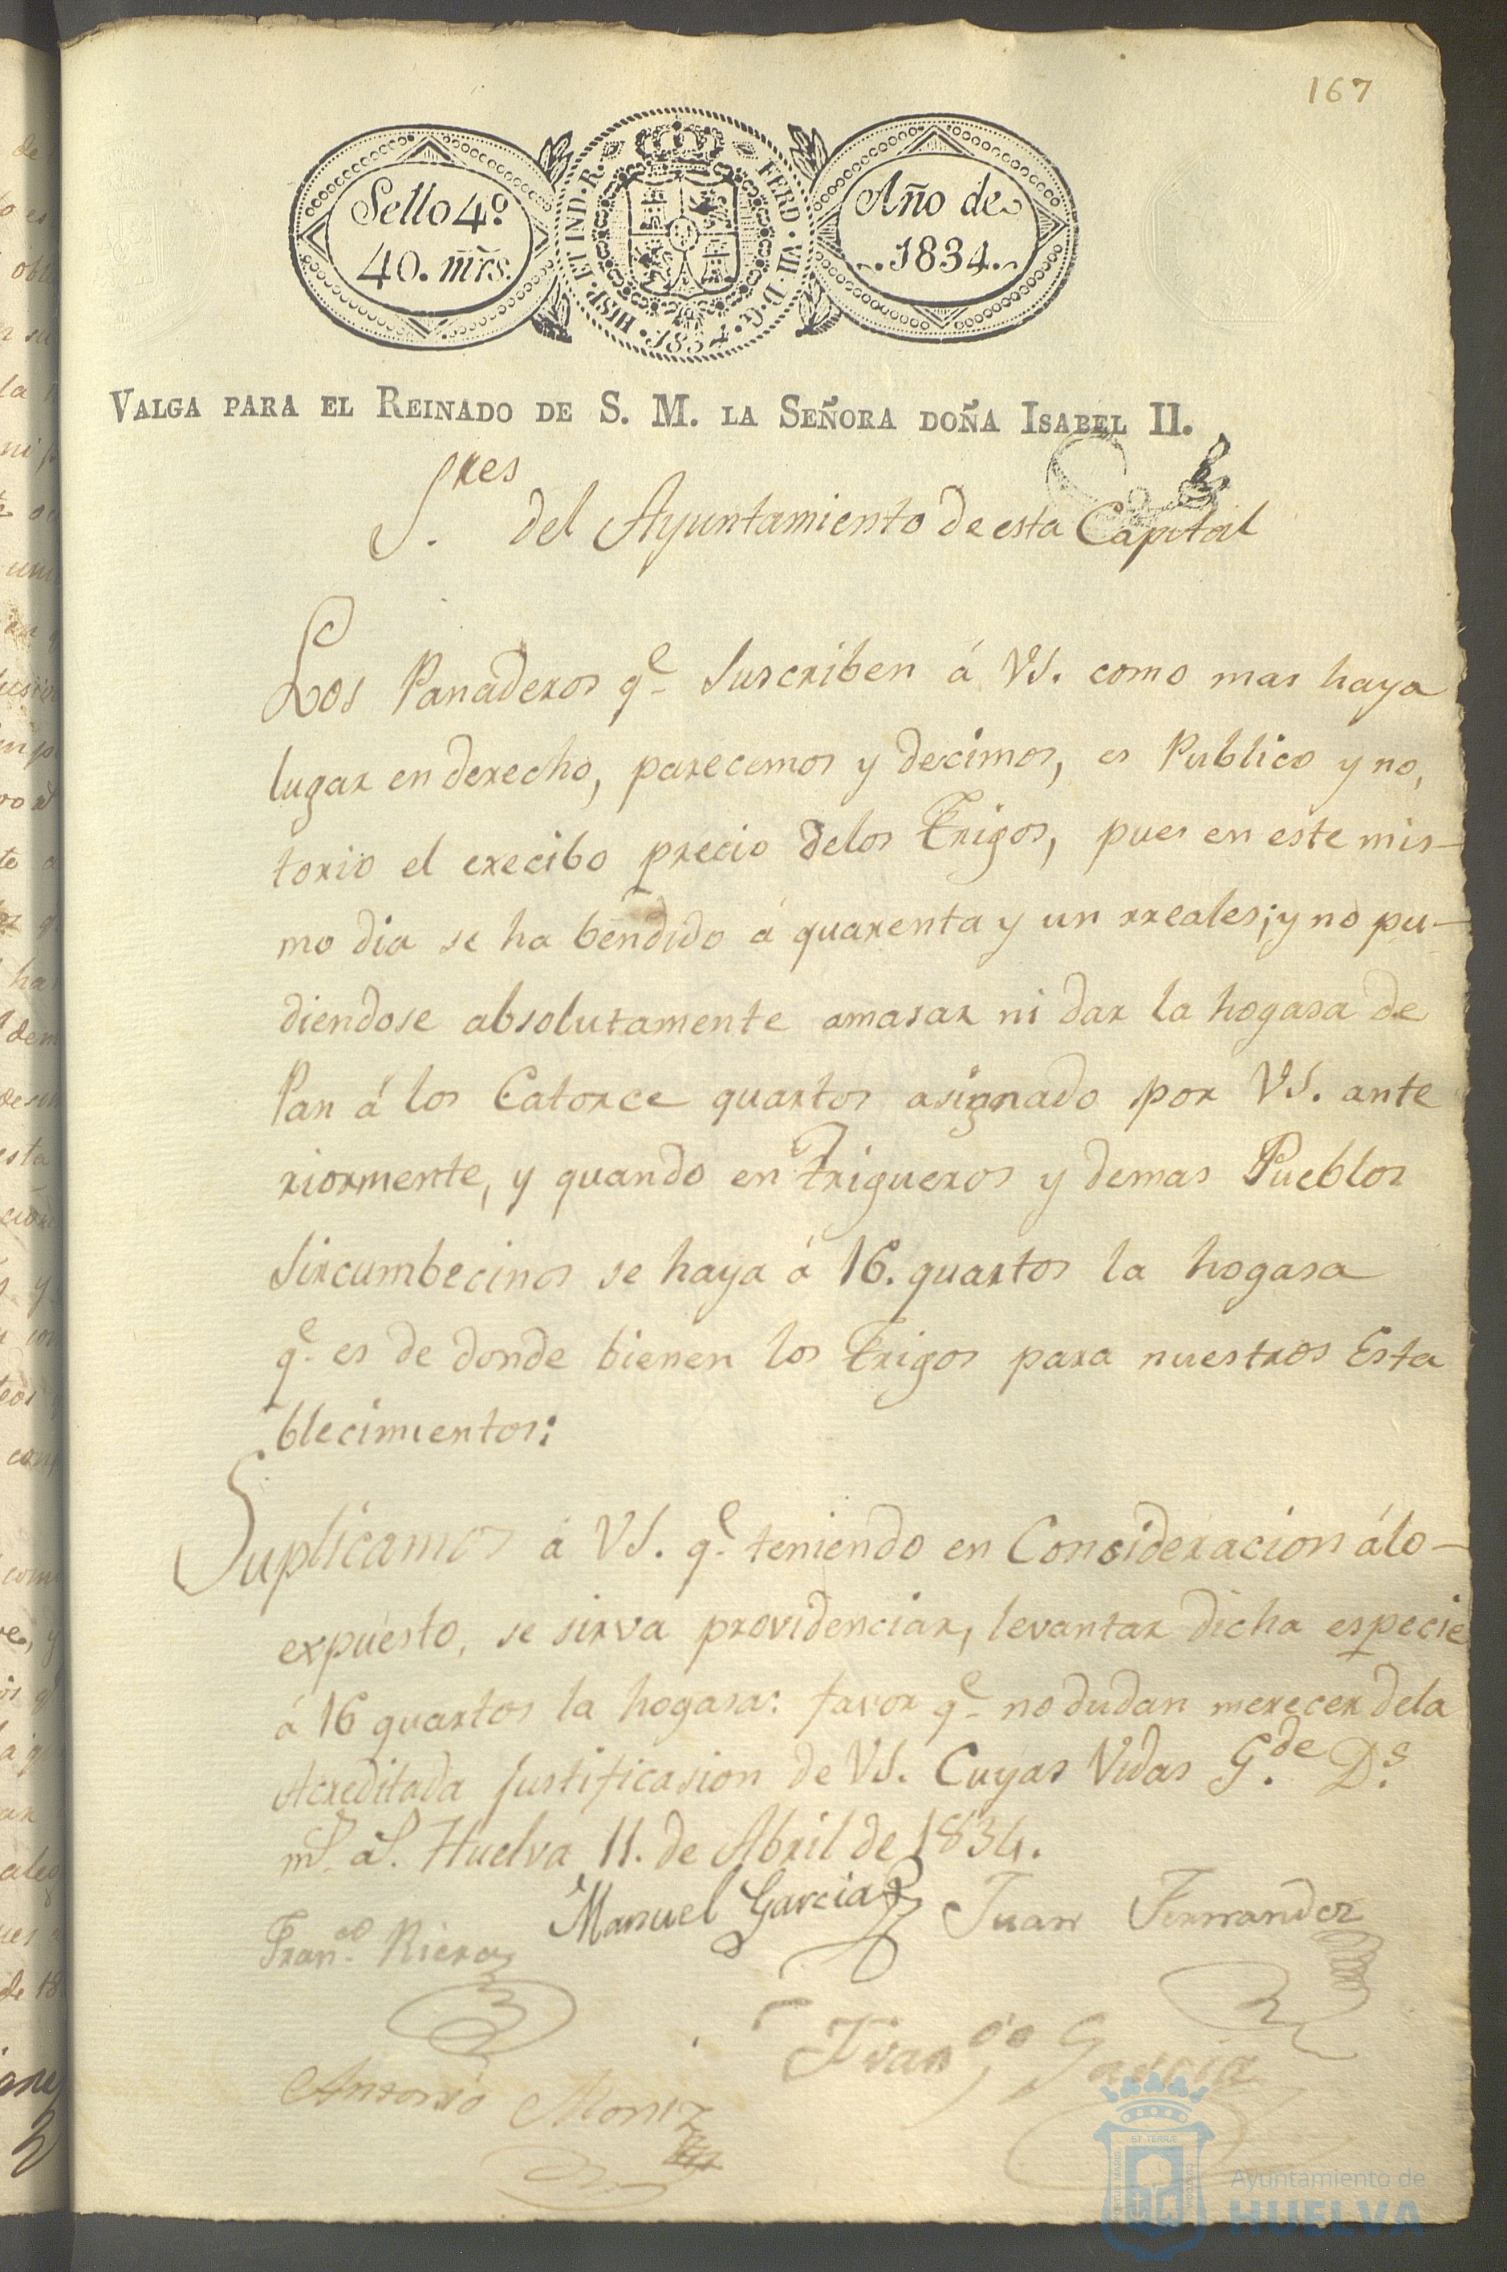 167
Sello 4º
40. mrs.
HISP. ET IND. R. FERD. VII. D. G. 1834.
Año de
1834.
VALGA PARA EL REINADO DE S. M. LA SEÑORA DOÑA ISABEL II.
S.res del Ayuntamiento de esta Capital
Los Panaderos q.e Suscriben á VS. como mas haya
lugar en derecho, parecemos y decimos, es Publico y no,
torio el crecibo precio delos Trigos, pues en este mis-
mo dia se ha bendido á quarenta y un rreales; y no pu-
diendose absolutamente amasar ni dar la hogasa de
Pan á los Catorce quartos asignado por VS. ante
riormente, y quando en Trigueros y demas Pueblos
Sircumbecinos se haya á 16. quartos la hogasa
q.e es de donde bienen los Trigos para nuestros Esta
blecimientos:
Suplicamos á VS. q.e teniendo en Consideracion álo-
expuesto, se sirva providenciar, levantar dicha especie
á 16 quartos la hogasa: favor q.e no dudan merecer dela
Acreditada Justificasion de VS. Cuyas Vidas G.de D.s
m.s a.s Huelva 11. de Abril de 1834.
Fran.co Riera Manuel Garcia Juan Fernandez
Fran.co Garcia
Antonio Moniz
Ayuntamiento de
HUELVA